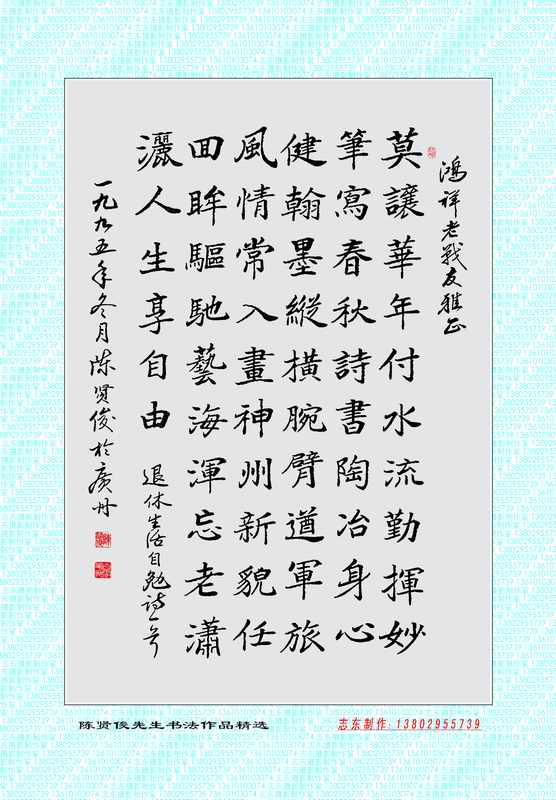 鴻祥老戰友雅正
莫讓華年付水流勤揮妙
筆寫春秋詩書陶冶身心
健翰墨縱橫腕臂遒軍旅
風情常入畫神州新貌任
回眸驅馳藝海渾忘老瀟
灑人生享自由
退休生活自勉詩一首
一九九五年冬月陈贤俊於廣州
陈贤俊先生书法作品精选
志东制作: 13802955739